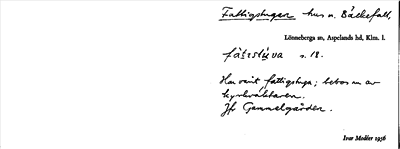 Fattigstugan hus u. Bäckefall,
Lönneberga sn, Aspelands hd, Klm. l.
s. 18.
Har varit fattigstuga; bebos nu av
kyrkväktaren.
Jfr Gammelgården.
Ivar Modéer 1936